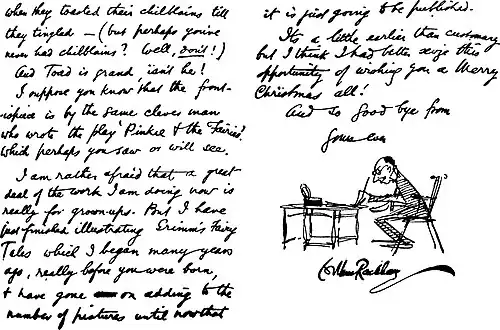 when they toasted their chilblains till
they tingled — (but perhaps you've
never had chilblains? Well, don't!)
And Toad is grand, isn't he!
I suppose you know that the front-
ispiece is by the same clever man
who wrote the play 'Pinkie & the Fairies'.
Which perhaps you saw or will see.
I am rather afraid that a great
deal of the work I am doing now is
really for grownups. But I have
just finished illustrating Grimm's Fairy
Tales which I began many years
ago, really before you were born,
& have gone on adding to the
number of pictures until now that
it is just going to be published.
It's a little earlier than customary
but I think I had better seize this
opportunity of wishing you a Merry
Christmas all!
And so Good bye from
Yours ever
Arthur Rackham